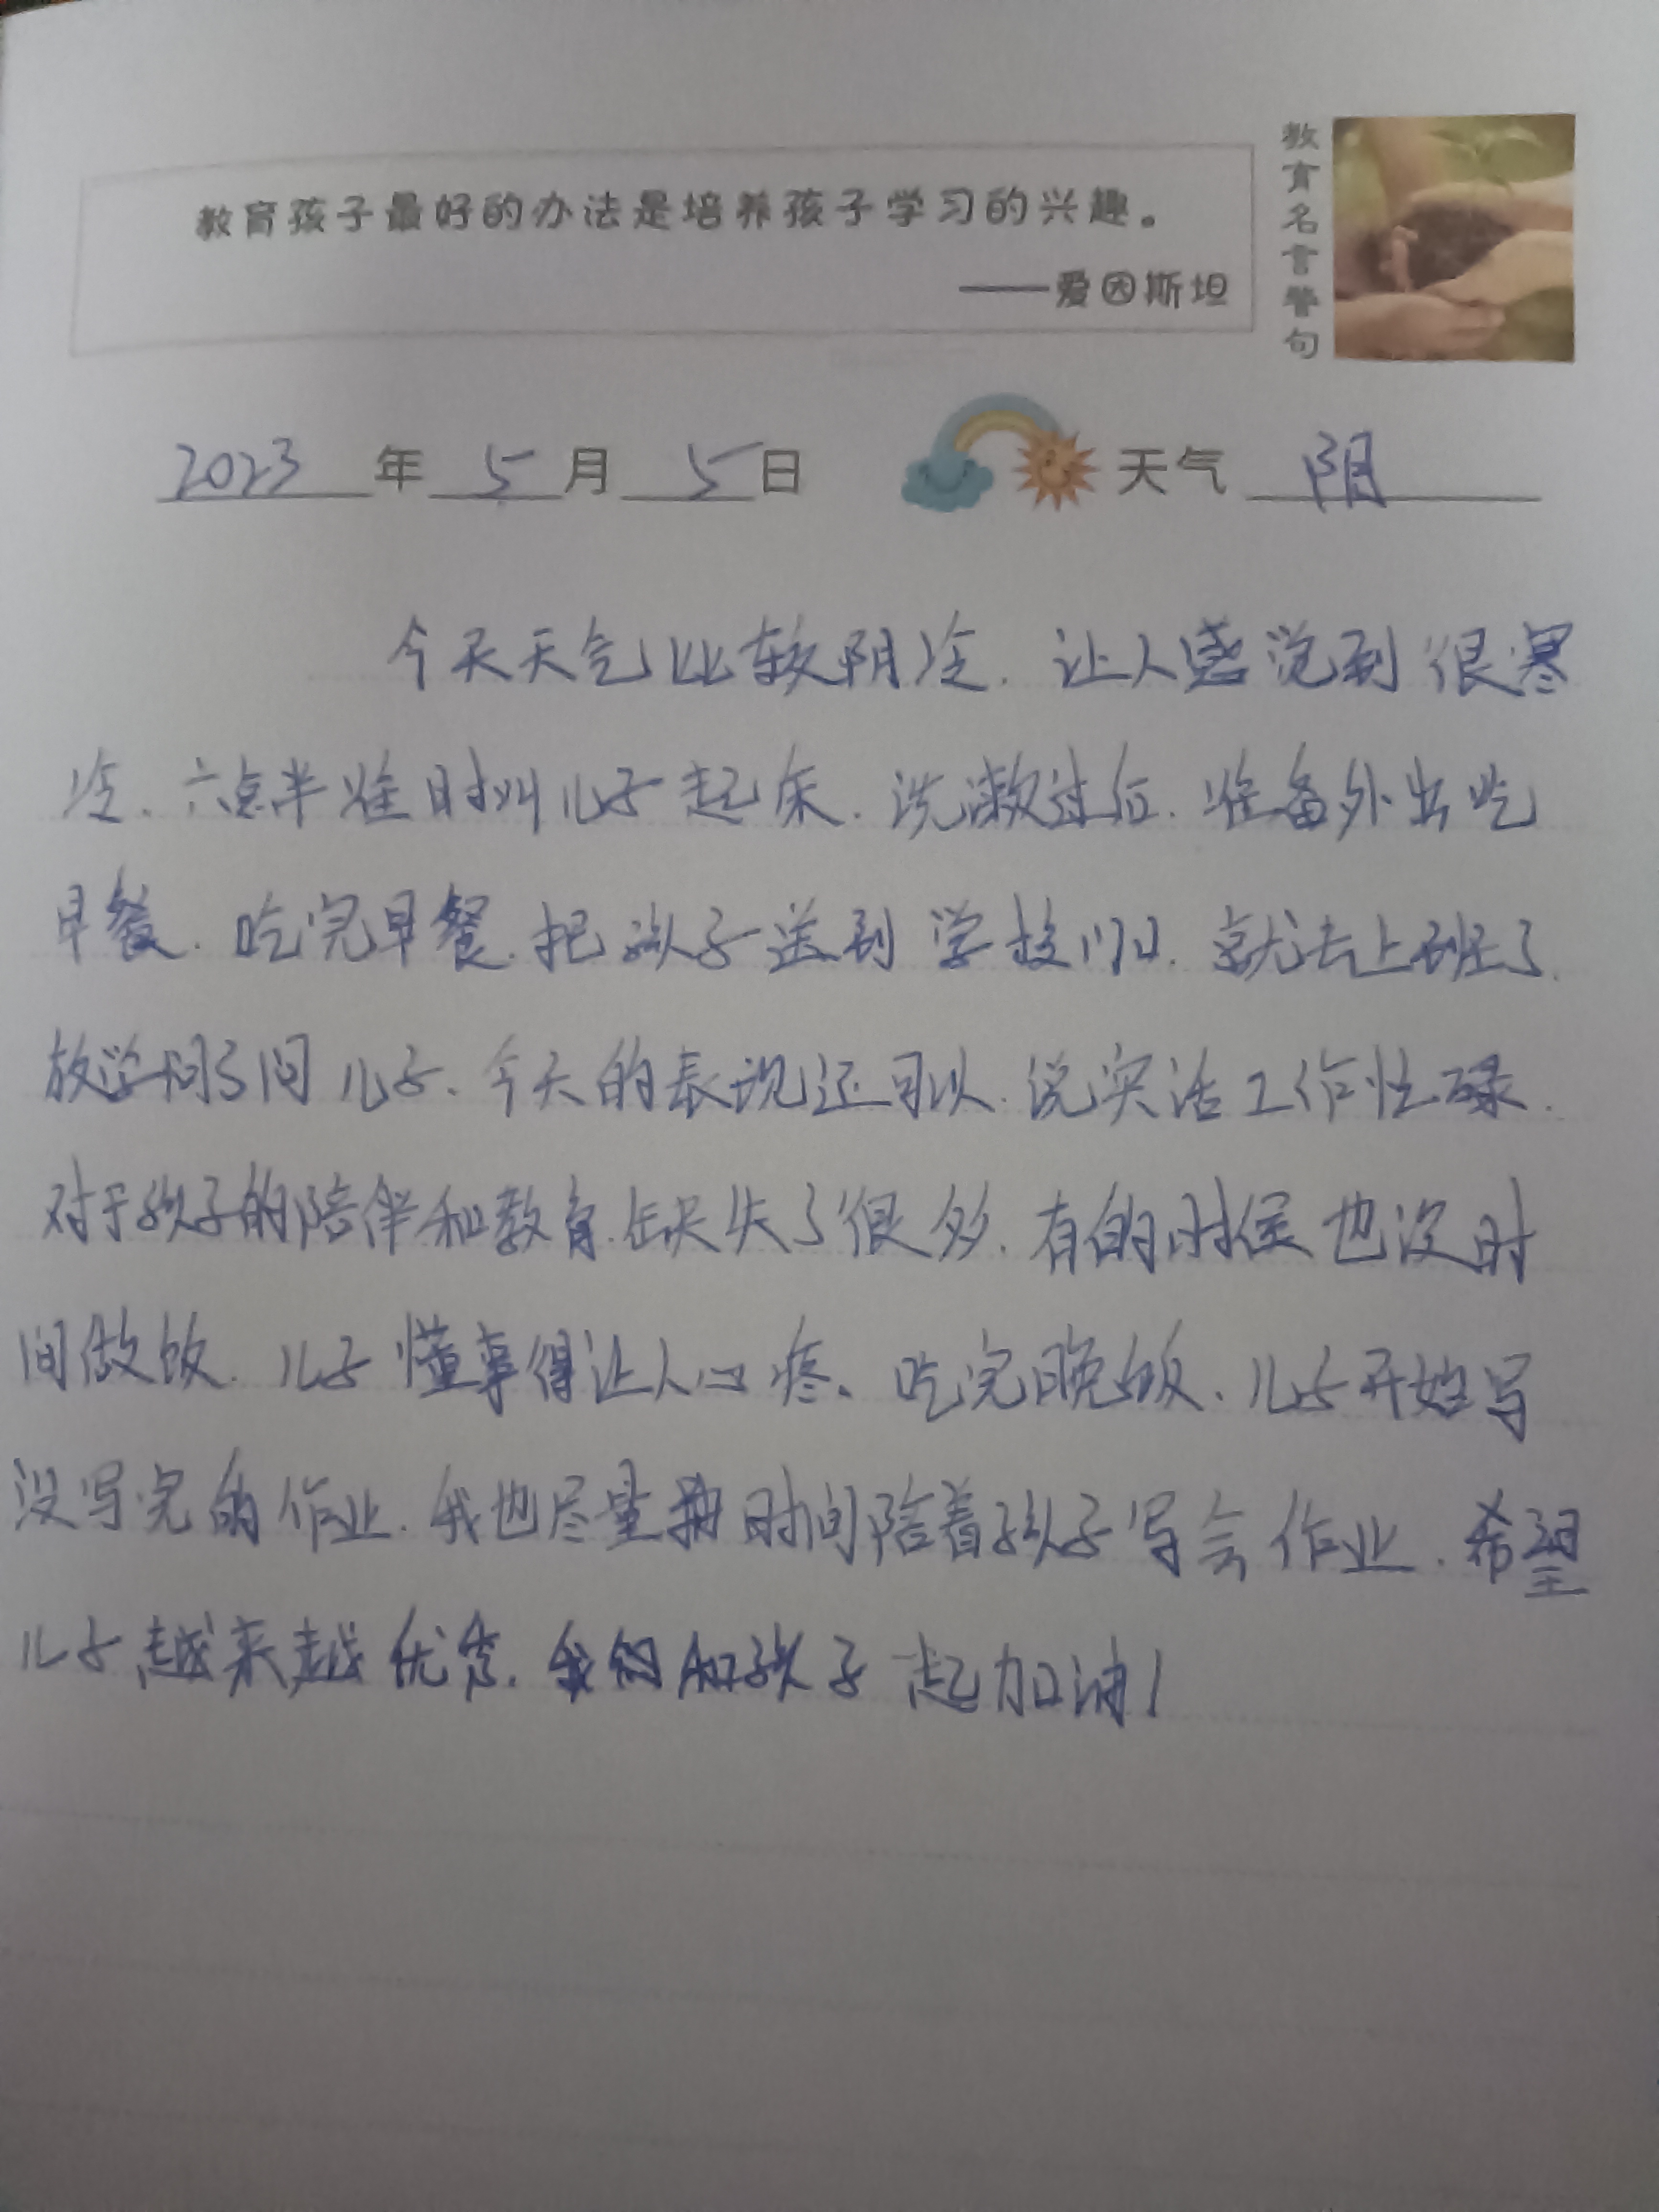 教育孩子最好的办法是培养孩子学习的兴趣。
——爱因斯坦
教育名言警句
2023年5月5日 天气 阴
今天天气比较阴冷.让人感觉到很寒
冷.六点半准时叫儿子起床.洗漱过后.准备外出吃
早餐.吃完早餐.把孩子送到学校门口.就去上班了.
放学问了问儿子.今天的表现还可以.说实话工作忙碌.
对于孩子的陪伴和教育.缺失了很多.有的时候也没时
间做饭.儿子懂事得让人心疼。吃完晚饭.儿子开始写
没写完的作业.我也尽量抽时间陪着孩子写会作业.希望
儿子越来越优秀.我们和孩子一起加油!